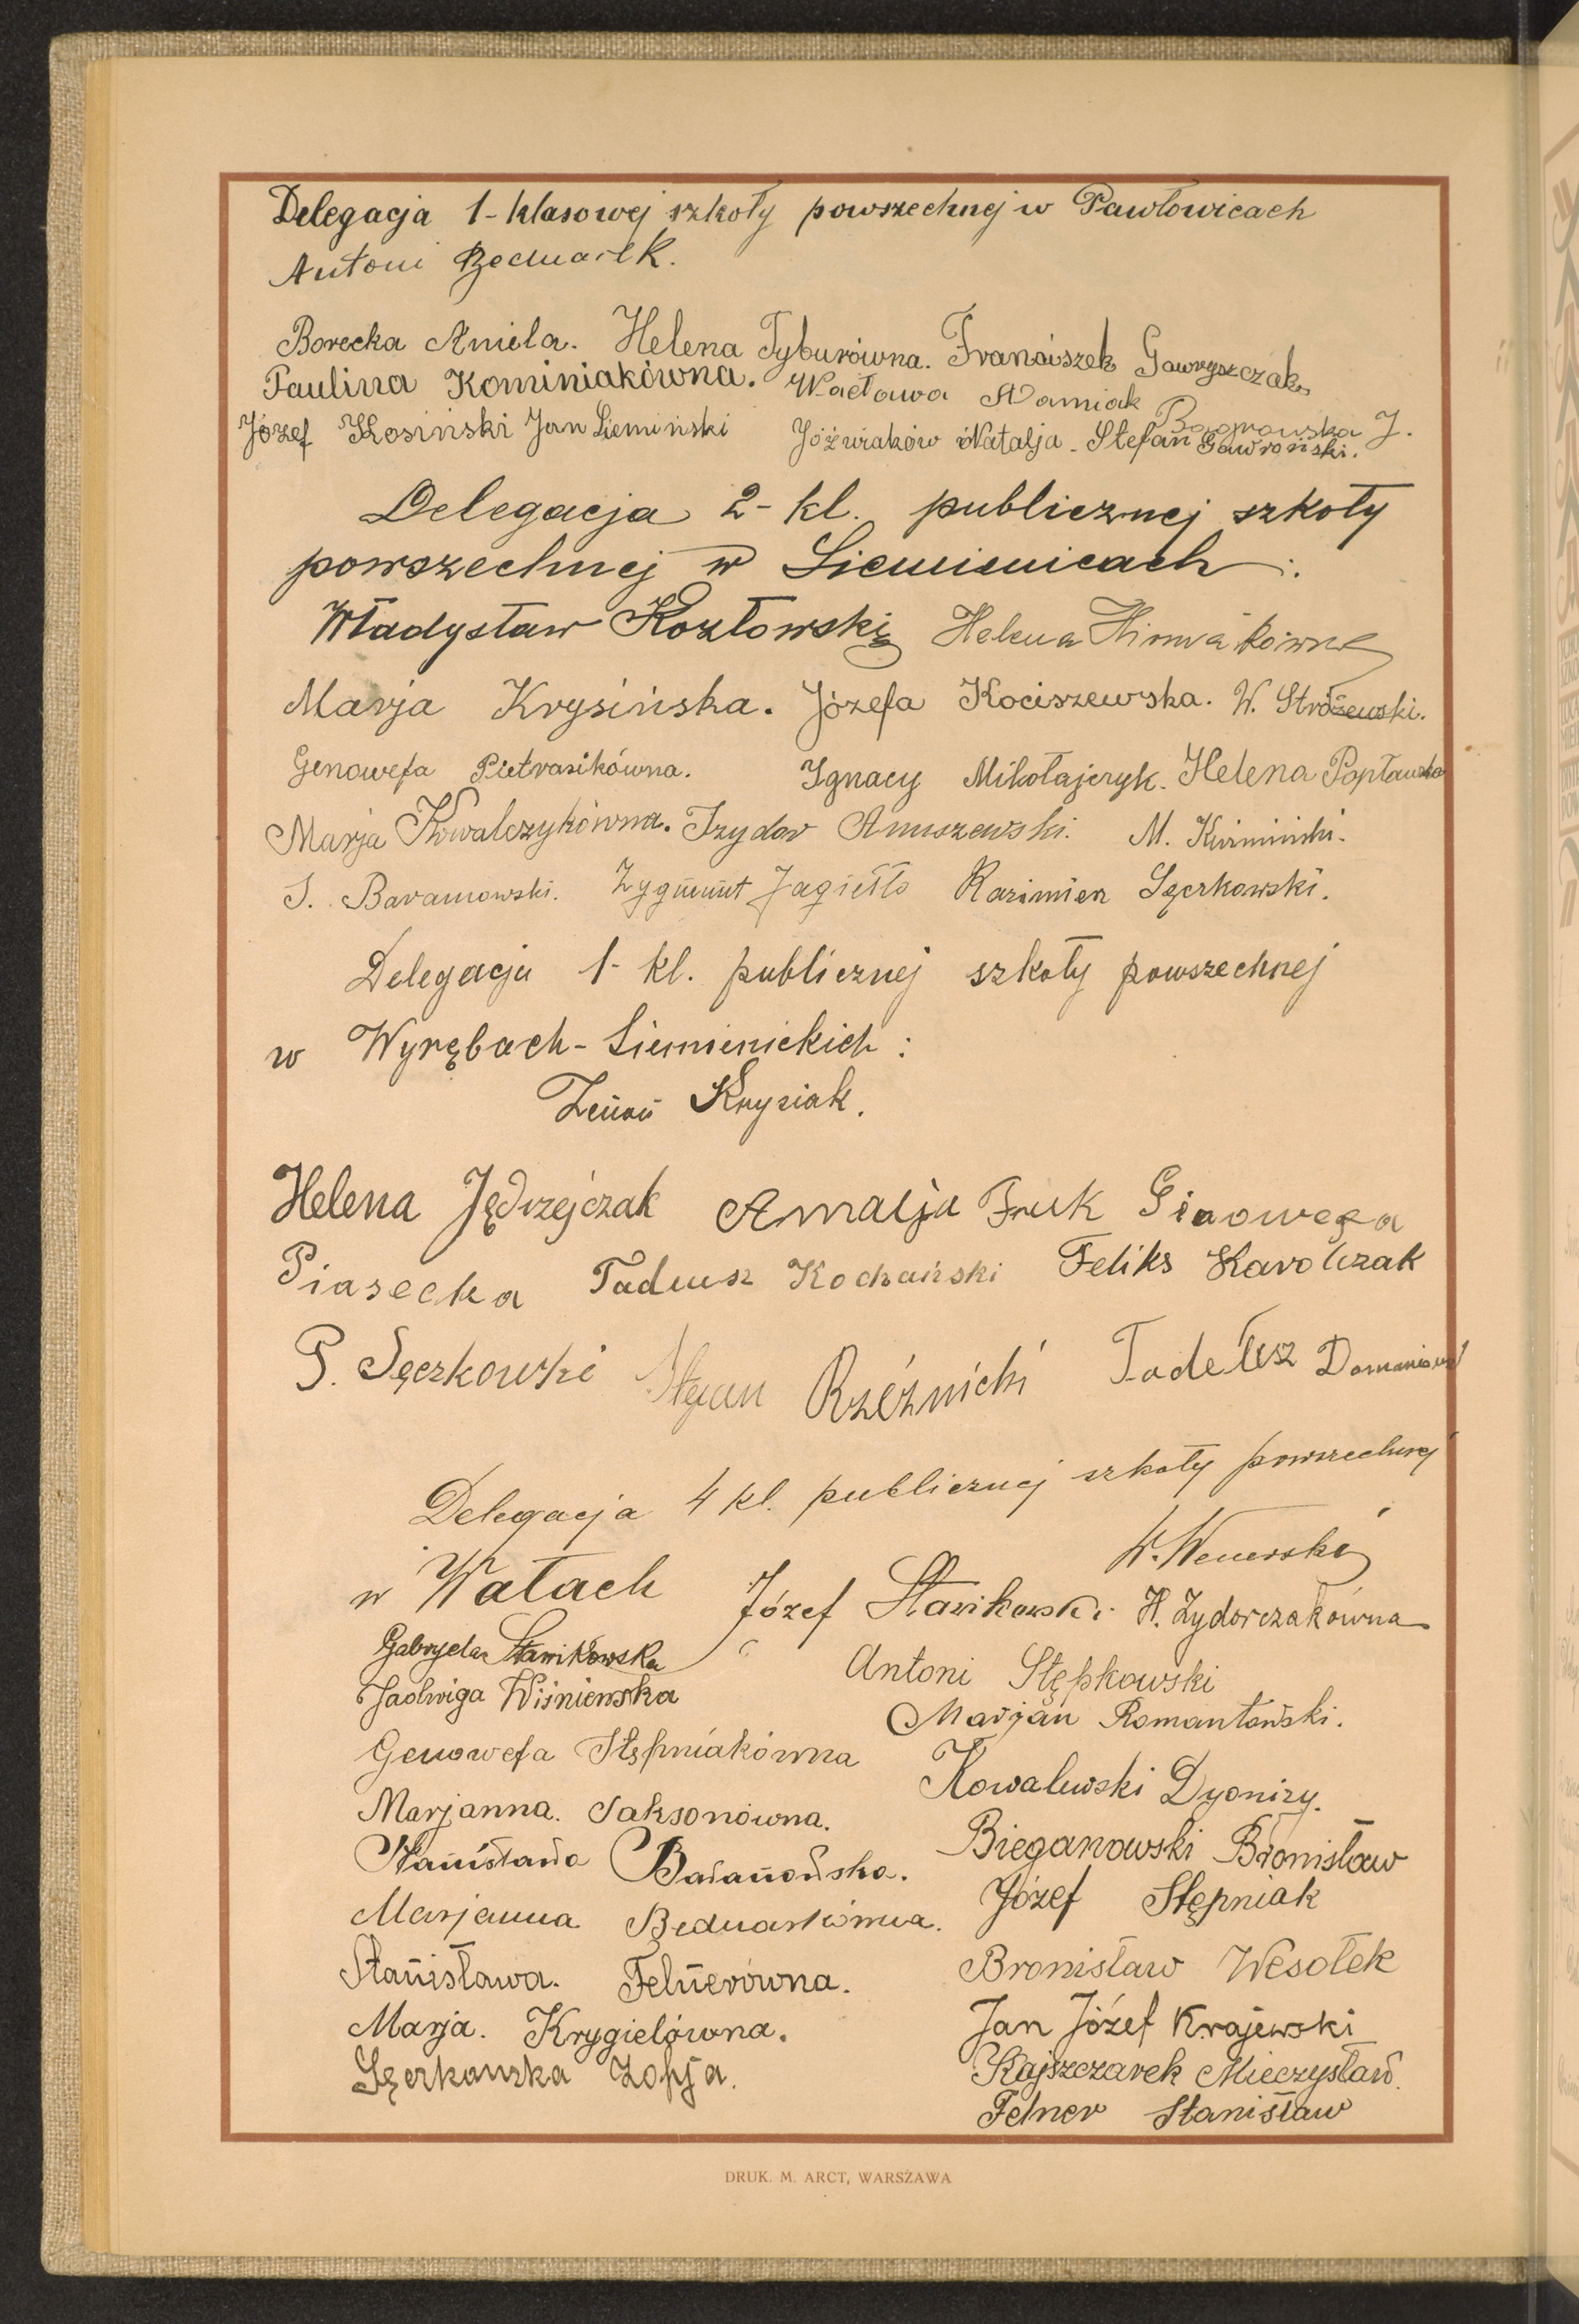 Delegacja 1-klasowej szkoły powszechnej w Pawłowicach
Antoni Bednarek.
Borecka Aniela. Helena Tyburówna. Franciszek Gawryszczak
Paulina Kominiakówna. Wacława Adamiak
Józef Kosiński Jan Siemiński Jóźwiaków Natalja - Stefan Gawroński. J.
Delegacja 2-kl. publicznej szkoły
powszechnej w Siemienicach:
Władysław Kozłowski Helena
Marja Krysińska. Józefa Kociszewska. W. Stróżewski.
Genowefa Pietrasikówna. Ignacy Mikołajczyk. Helena Popławska
Marja Kowalczykówna. Izydor Anuszewski. M.
S. Baranowski. Zygmunt Jagiełło Kazimierz Sęczkowski.
Delegacja 1-kl. publicznej szkoły powszechnej
w Wyrębach-Siemienickich:
Zenon Krysiak.
Helena Jędrzejczak Amalja Fruk Gienowefa
Piasecka Tadeusz Kochański Feliks Karolczak
P. Sęczkowski Stefan Rzéźnicki Tadeusz
Delegacja 4 kl. publicznej szkoły powszechnej
w Wałach W. Wenerski
Józef Stawikowski H. Zydorczakówna
Gabryela Stawikowska
Antoni Stępkowski
Jadwiga Wiśniewska
Marjan Romantowski.
Genowefa Stępniakówna
Kowalewski Dyonizy.
Marjanna. Saksonówna.
Bieganowski Bronisław
Stanisława Baranowska.
Józef Stępniak
Marjanna Bednarkówna.
Bronisław Wesołek
Stanisława. Felnerówna.
Jan Józef Krajewski
Marja. Krygielówna.
Kajszczarek Mieczysław.
Sęczkowska Zofja.
Felner Stanisław
DRUK. M. ARCT, WARSZAWA